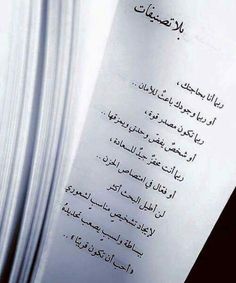 بلا تصنيفات
ربما أنا بحاجتك ،
أو ربما وجودك باعثٌ للأمان ..
ربما تكون مصدر قوة ،
أو شخصٌ يغضّ وحدتي ويمزقها ..
ربما أنت محفزٌ جيدٌ للسعادة ،
أو فعّال في امتصاص الحزن ..
لن أطيل البحث أكثر
لإيجاد تشخيصٍ مناسبٍ لشعوري
ببساطة ولسببٍ يصعب تحديدهُ
«أحب أن تكون قريبًا» ..